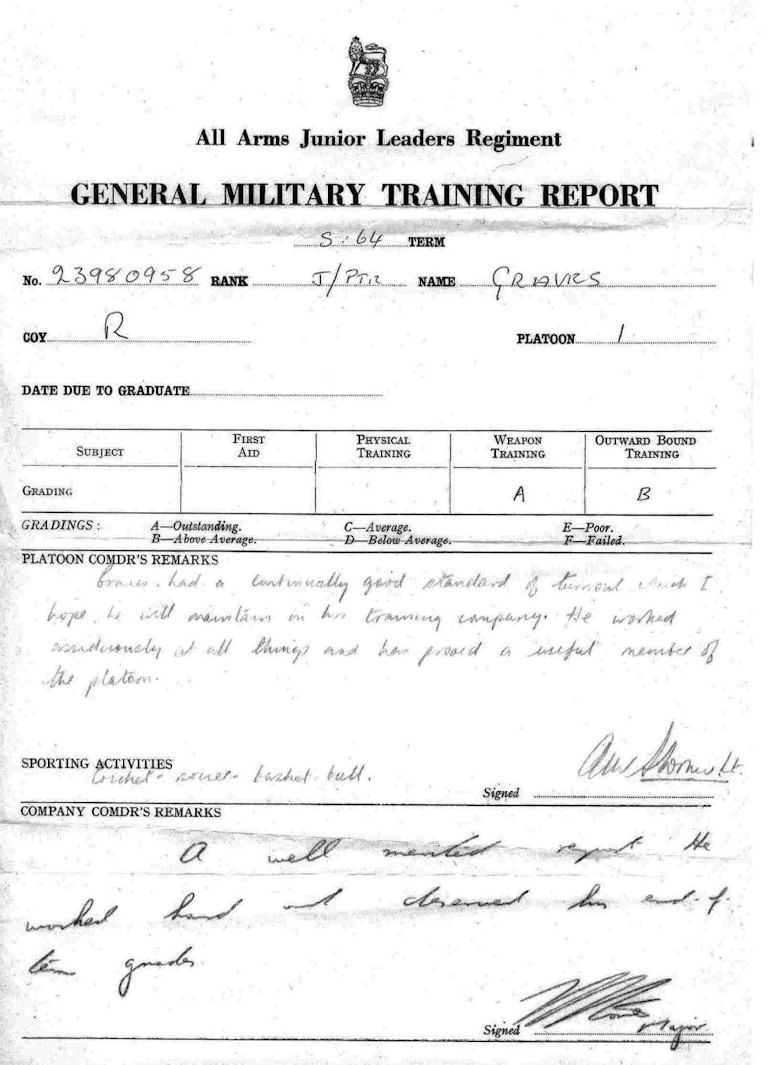 All Arms Junior Leaders Regiment
GENERAL MILITARY TRAINING REPORT
S:64 TERM
No. 23980958 RANK J/PTR NAME GRAVES
COY R PLATOON 1
DATE DUE TO GRADUATE
SUBJECT FIRST AID PHYSICAL TRAINING WEAPON TRAINING OUTWARD BOUND TRAINING
GRADING A B
GRADINGS: A—Outstanding. C—Average. E—Poor.
B—Above Average. D—Below Average. F—Failed.
PLATOON COMDR'S REMARKS
Graves had a continually good standard of turnout which I
hope he will maintain in his training company. He worked
assiduously at all things and has proved a useful member of
the platoon.
SPORTING ACTIVITIES
Cricket - soccer - basket-ball.
Signed Lt.
COMPANY COMDR'S REMARKS
A well merited report. He
worked hard and deserved his end-of-
term grades.
Signed Major